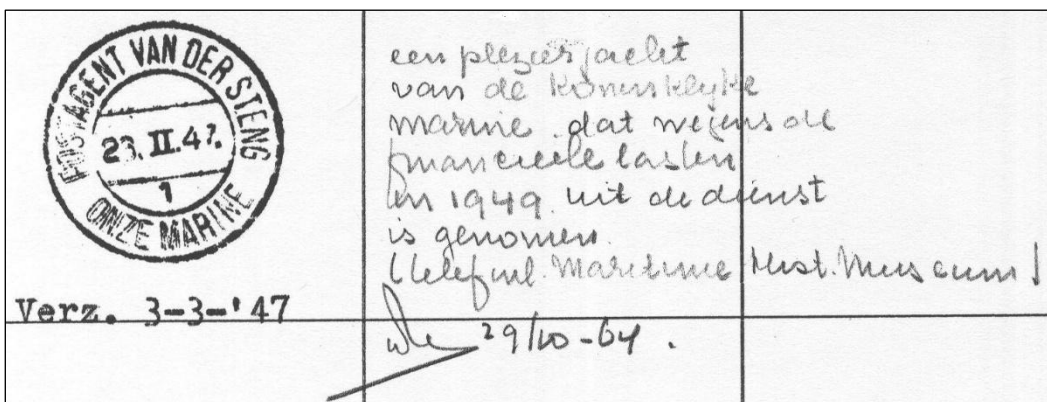 POSTAGENT VAN DER STENG
23. II. 47.
1
ONZE MARINE
Verz. 3-3-'47
een plezierjacht
van de Koninklyke
marine dat wegens de
financieele lasten
in 1949 uit de dienst
is genomen.
(telef. inl. Maritime Hist. Museum)
29/10-64.